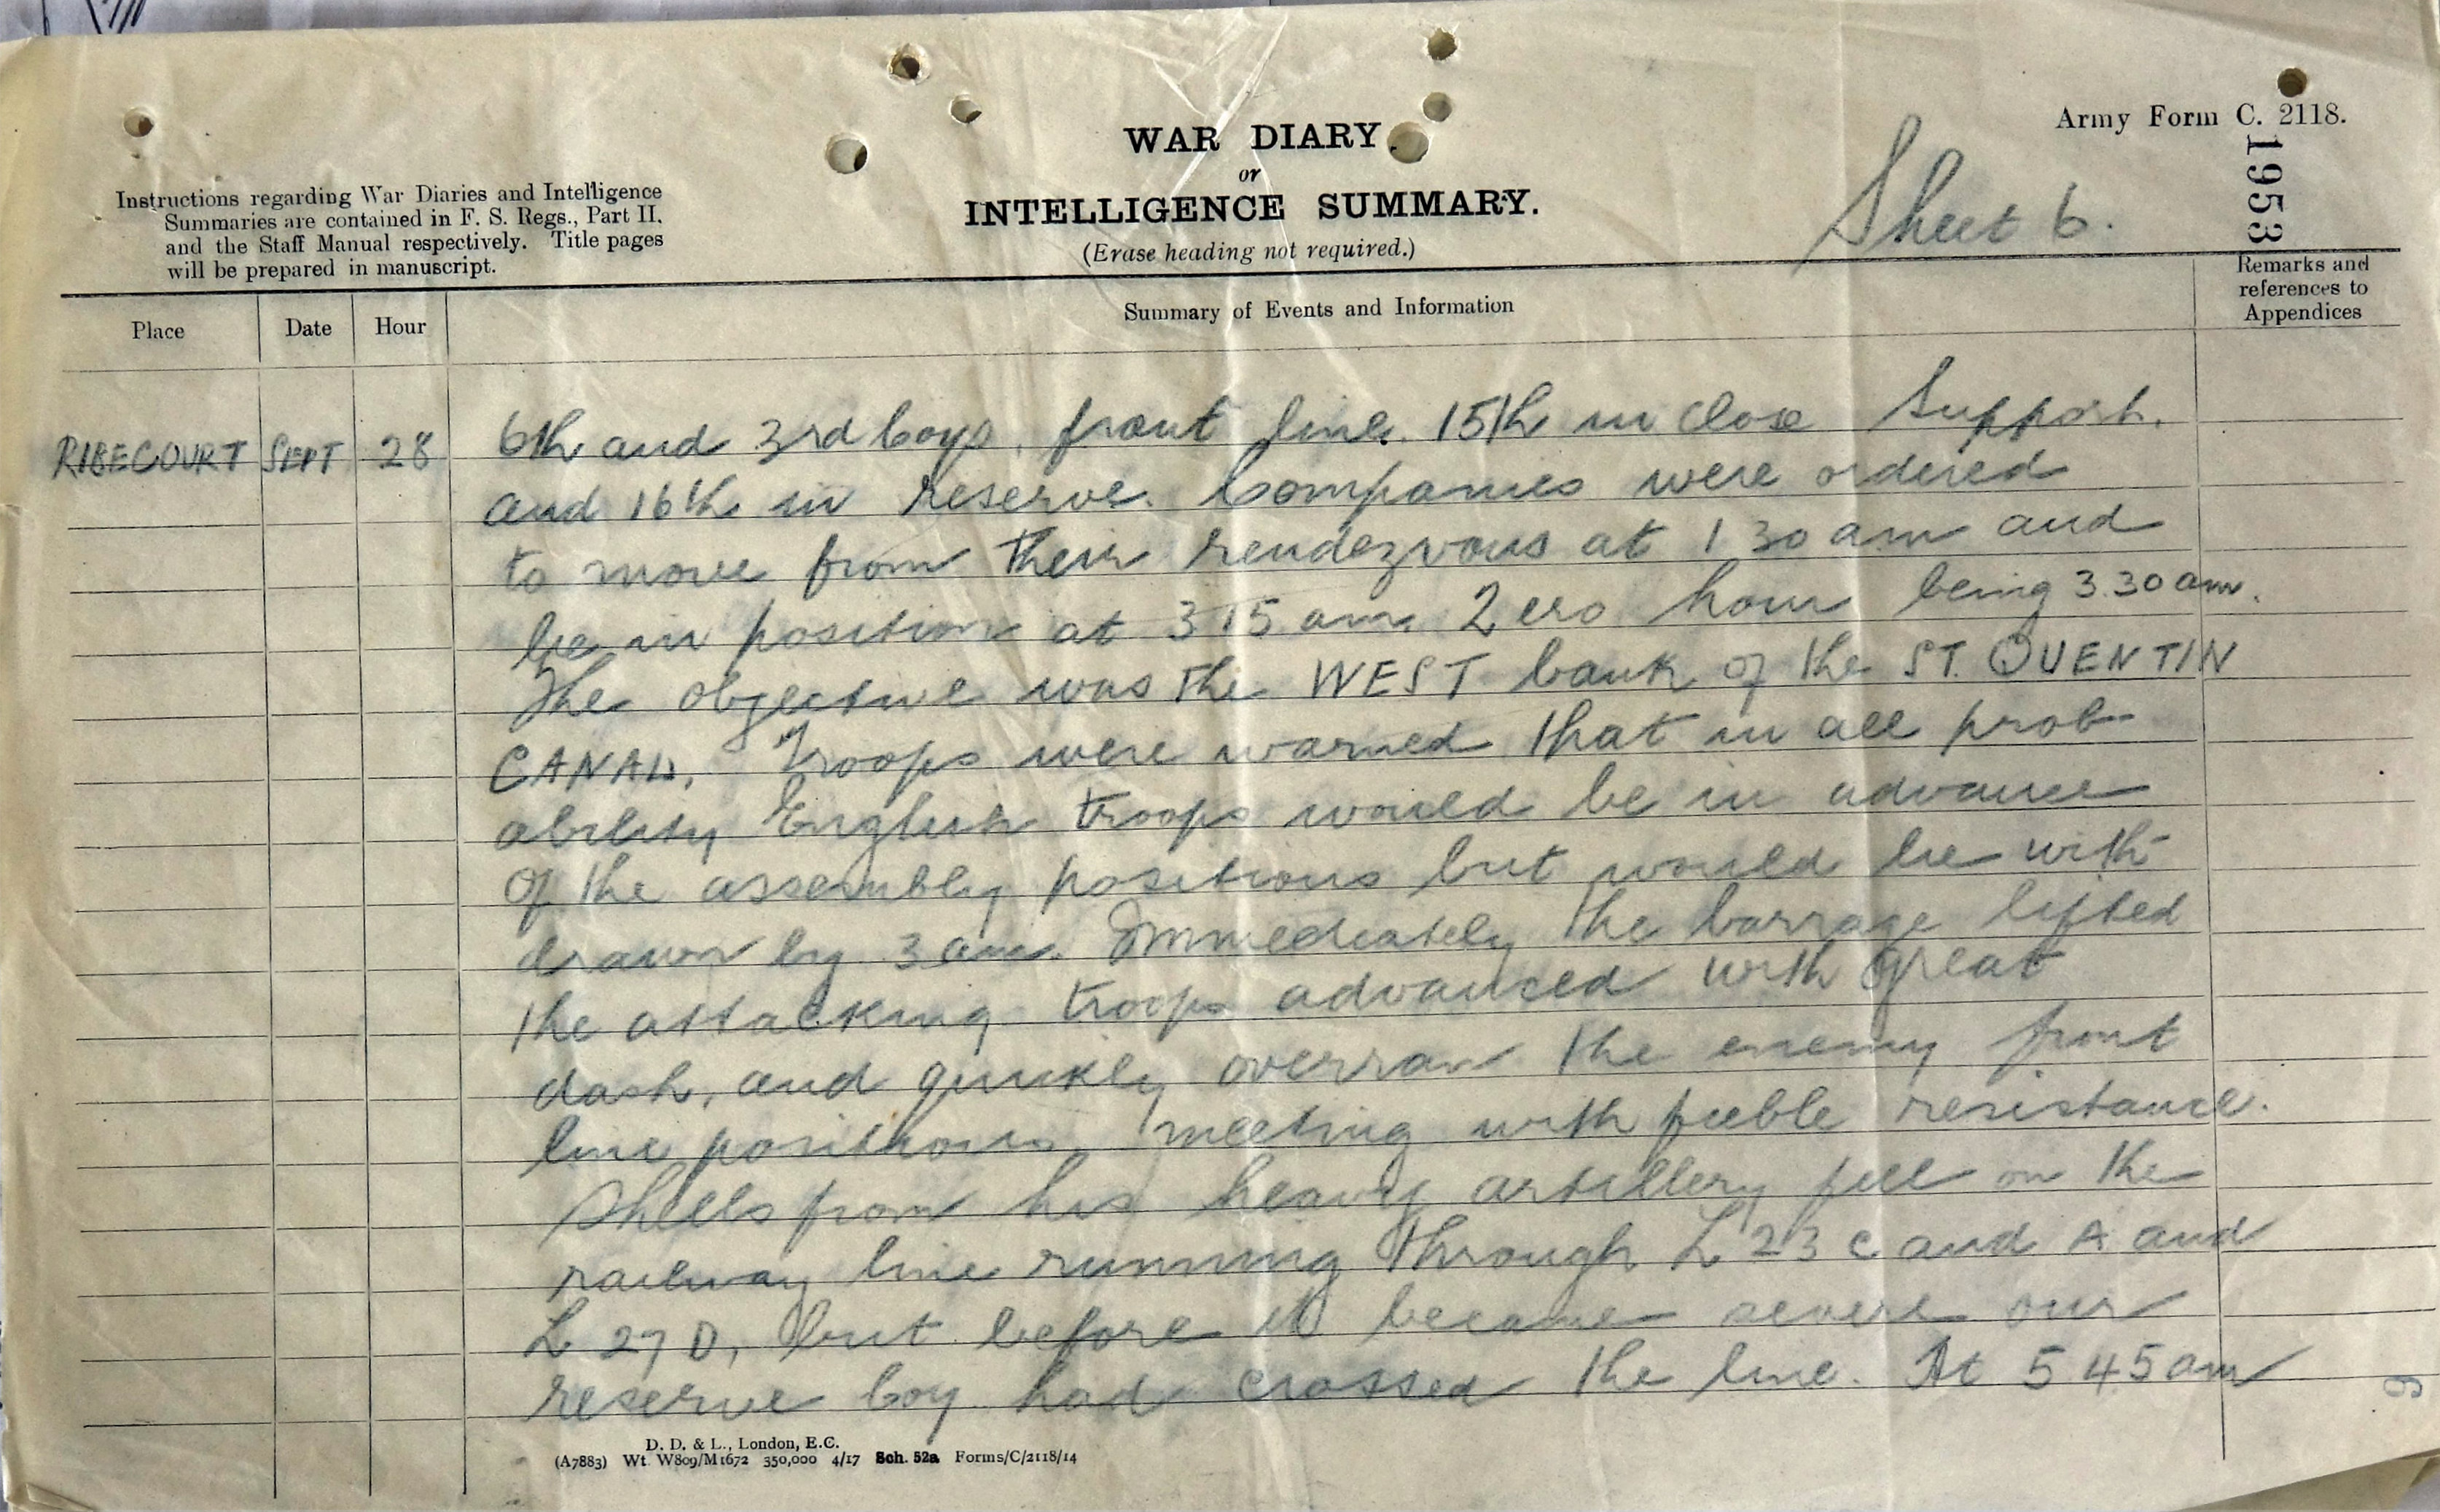 Army Form C. 2118.
WAR DIARY
or
INTELLIGENCE SUMMARY.
(Erase heading not required.)
Instructions regarding War Diaries and Intelligence
Summaries are contained in F. S. Regs., Part II,
and the Staff Manual respectively. Title pages
will be prepared in manuscript.
Sheet 6.
1953
Place
Date
Hour
Summary of Events and Information
Remarks and
references to
Appendices
RIBECOURT SEPT 28
6th and 3rd Coys. front line. 15th in close Support.
and 16th in reserve. Companies were ordered
to move from their rendezvous at 1 30 am and
be in position at 3 15 am. Zero hour being 3.30 am.
The objective was the WEST bank of the ST. QUENTIN
CANAL. Troops were warned that in all prob-
ability English troops would be in advance
of the assembly positions but would be with-
drawn by 3 am. Immediately the barrage lifted
the attacking troops advanced with great
dash, and quickly overran the enemy front
line positions meeting with feeble resistance.
Shells from his heavy artillery fell on the
railway line running through L 23 c and A and
L 27 D, but before it became severe our
reserve Coy had crossed the line. At 5 45 am
6
D. D. & L., London, E.C.
(A7883) Wt. W809/M1672 350,000 4/17 Sch. 52a Forms/C/2118/14